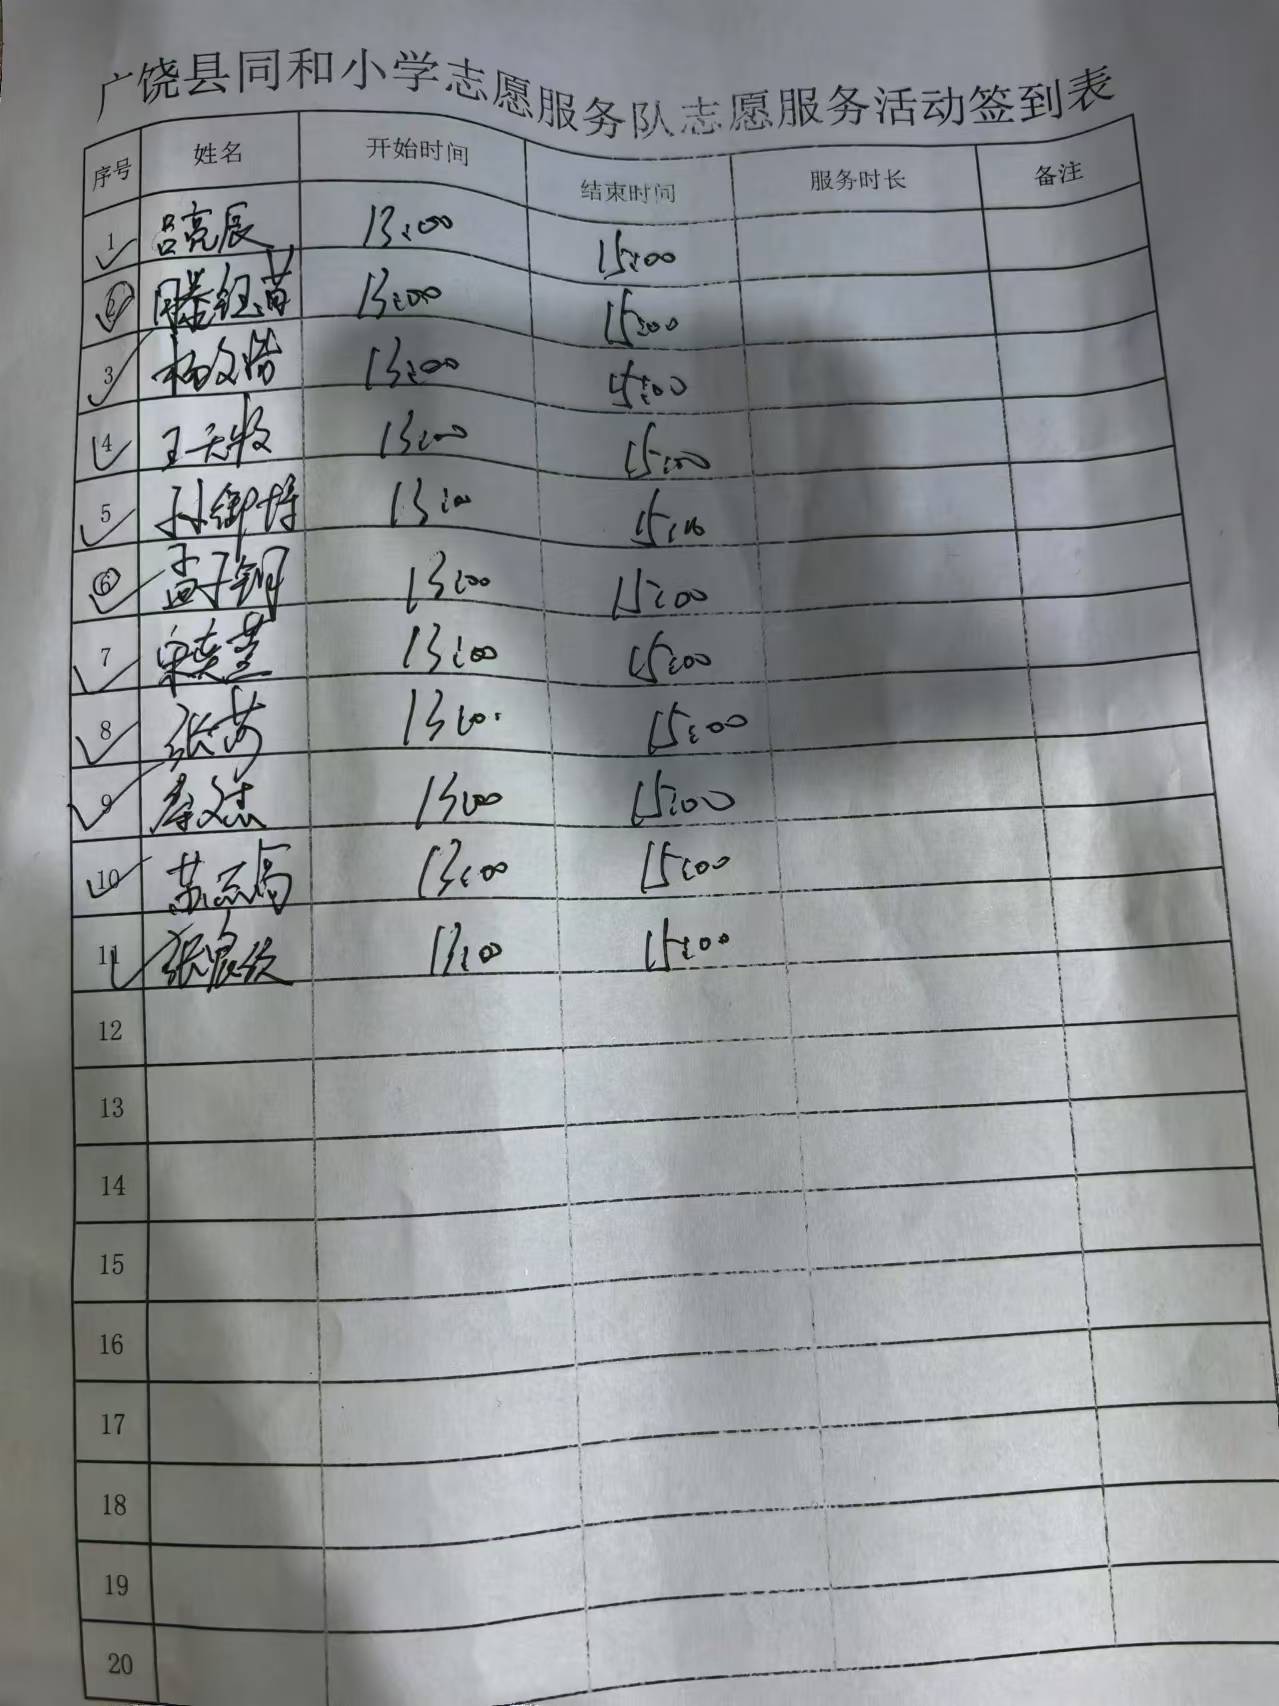 广饶县同和小学志愿服务队志愿服务活动签到表
序号 姓名 开始时间 结束时间 服务时长 备注
1 吕亮辰 13:00 15:00
2 滕钰苗 13:00 15:00
3 杨文浩 13:00 15:00
4 王天牧 13:00 15:00
5 孙御博 13:00 15:00
6 孟子钥 13:00 15:00
7 13:00 15:00
8 张苗 13:00 15:00
9 李文杰 13:00 15:00
10 13:00 15:00
11 13:00 15:00
12
13
14
15
16
17
18
19
20